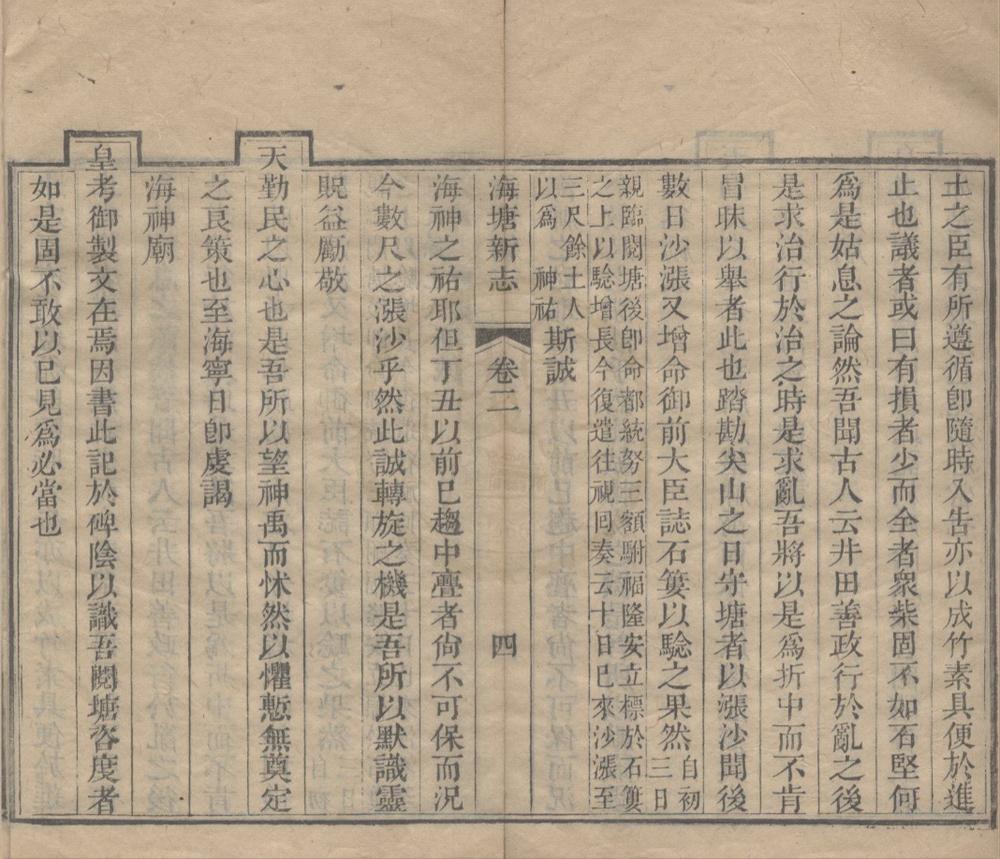 土之臣有所遵循卽隨時入告亦以成竹素具便於進
止也議者或曰有損者少而全者衆柴固不如石堅何
爲是姑息之論然吾聞古人云井田善政行於亂之後
是求治行於治之時是求亂吾將以是爲折中而不肯
冒昧以舉者此也踏勘尖山之日守塘者以漲沙聞後
數日沙漲又增命御前大臣誌石簍以驗之果然自初三日
親臨閱塘後卽命都統努三額駙福隆安立標於石簍
之上以驗增長今復遣往視回奏云十日巳來沙漲至
三尺餘土人
以爲 神祐
斯誠
海塘新志 卷二 四
海神之祐耶但丁丑以前巳趨中亹者尙不可保而況
今數尺之漲沙乎然此誠轉旋之機是吾所以默識靈
貺益勵敬
天勤民之心也是吾所以望神禹而怵然以懼慙無奠定
之良策也至海寧日卽虔謁
海神廟
皇考御製文在焉因書此記於碑陰以識吾閱塘咨度者
如是固不敢以巳見爲必當也